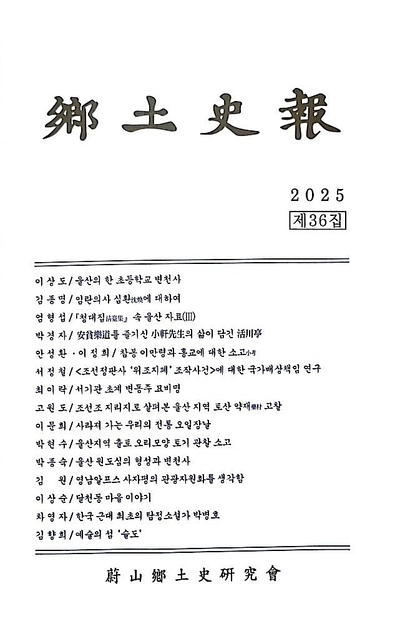 鄕土史報
2025
제36집
이상도/울산의 한 초등학교 변천사
김종명/임란의사 심환沈煥에 대하여
엄형섭/『청대집淸臺集』 속 울산 자료(Ⅲ)
박경자/安貧樂道를 즐기신 小軒先生의 삶이 담긴 活川亭
안성환·이정희/참봉 이만령과 홍교에 대한 소고小考
서정철/<조선정판사 '위조지폐' 조작사건>에 대한 국가배상책임 연구
최이락/서기관 초계 변동주 묘비명
고원도/조선조 지리지로 살펴본 울산 지역 토산 약재藥材 고찰
이문희/사라져 가는 우리의 전통 오일장날
박현수/울산지역 출토 오리모양 토기 관찰 소고
박종숙/울산 원도심의 형성과 변천사
김 원/영남알프스 사자평의 관광자원화를 생각함
이상순/달천동 마을 이야기
차영자/한국 근대 최초의 탐정소설가 박병호
김향희/예술의 섬 '술도'
蔚山鄕土史硏究會